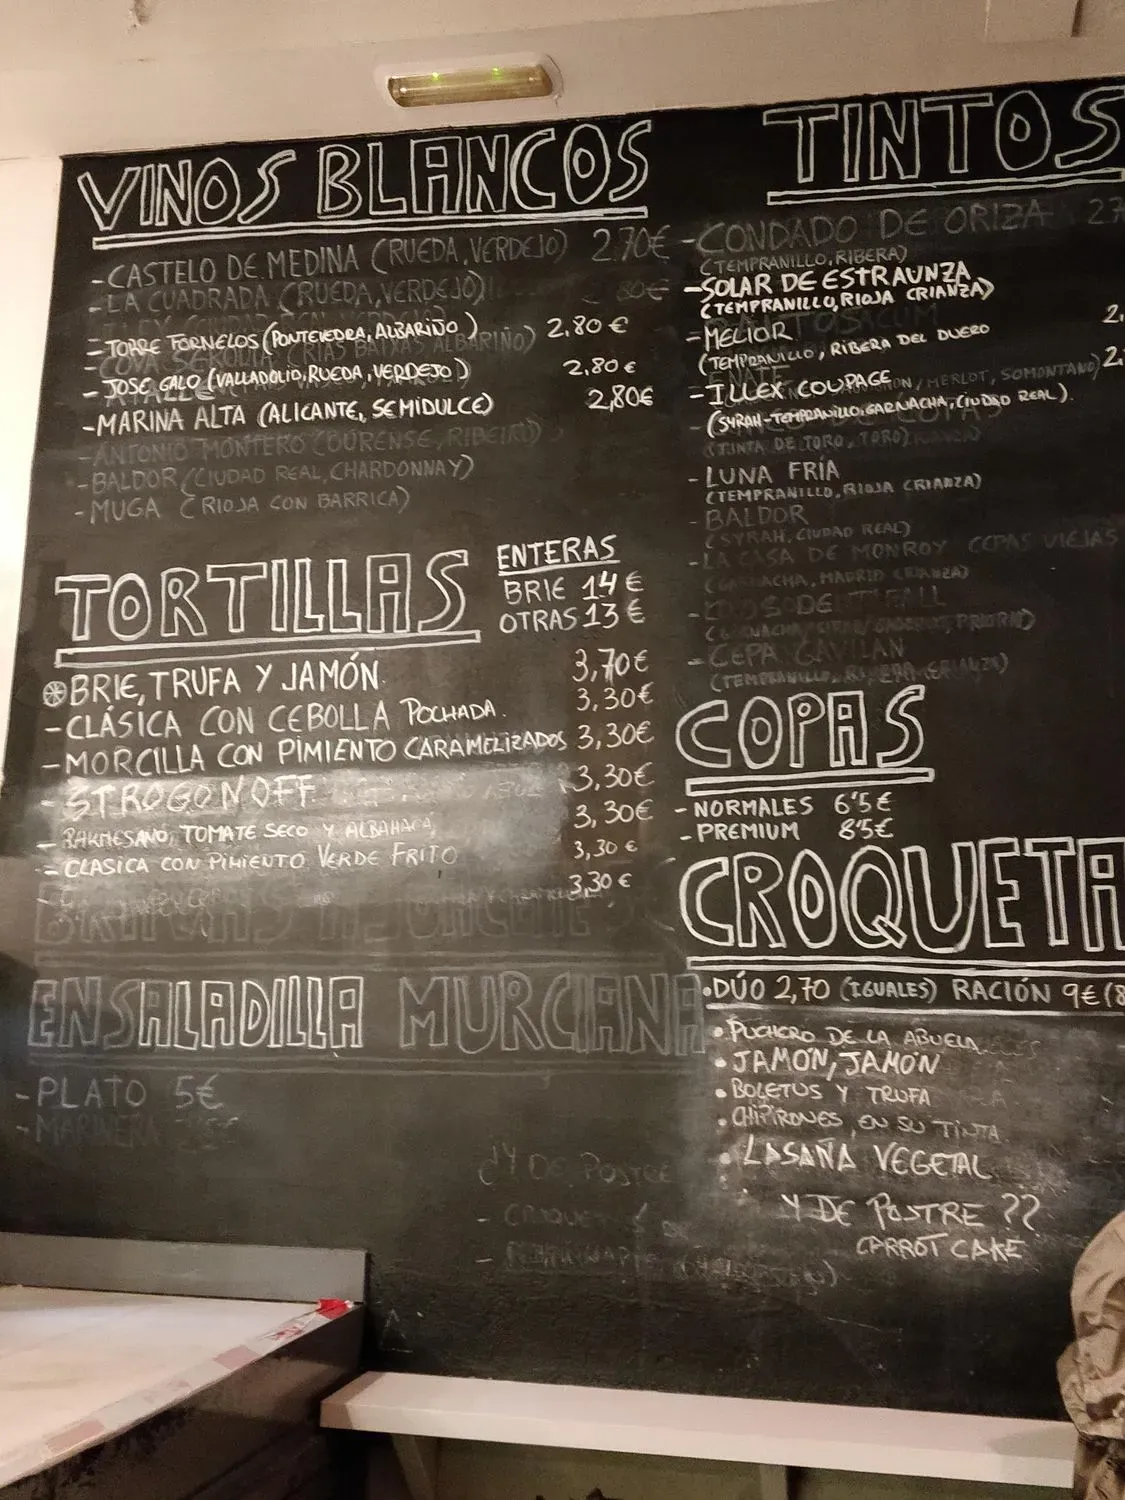 VINOS BLANCOS
- CASTELO DE MEDINA (RUEDA, VERDEJO) 2.70€
- LA CUADRADA (RUEDA, VERDEJO)
- TORRE FORNELOS (PONTEVEDRA, ALBARIÑO) 2,80€
- JOSE GALO (VALLADOLID, RUEDA, VERDEJO) 2,80€
- MARINA ALTA (ALICANTE, SEMIDULCE) 2,80€
- ANTONIO MONTERO (OURENSE, RIBEIRO)
- BALDOR (CIUDAD REAL, CHARDONNAY)
- MUGA (RIOJA CON BARRICA)
TORTILLAS
ENTERAS
BRIE 14€
OTRAS 13€
BRIE, TRUFA Y JAMÓN. 3,70€
- CLÁSICA CON CEBOLLA POCHADA. 3,30€
- MORCILLA CON PIMIENTO CARAMELIZADOS 3,30€
- STROGONOFF 3,30€
3,30€
- PARMESANO, TOMATE SECO Y ALBAHACA 3,30€
- CLASICA CON PIMIENTO VERDE FRITO 3,30€
ENSALADILLA MURCIANA
- PLATO 5€
- MARINERA
¿Y DE POSTRE
TINTOS
- CONDADO DE ORIZA 2.7
(TEMPRANILLO, RIBERA)
- SOLAR DE ESTRAUNZA
(TEMPRANILLO, RIOJA CRIANZA)
- MELIOR 2.
(TEMPRANILLO, RIBERA DEL DUERO
- ILLEX COUPAGE 2.
(SYRAH-TEMPRANILLO, GARNACHA, CIUDAD REAL).
(TINTA DE TORO, TORO)
- LUNA FRÍA
(TEMPRANILLO, RIOJA CRIANZA)
- BALDOR
(SYRAH, CIUDAD REAL)
- LA CASA DE MONROY CEPAS VIEJAS
(GARNACHA, MADRID CRIANZA)
- CEPA GAVILAN
COPAS
- NORMALES 6'5€
- PREMIUM 8'5€
CROQUETA
• DÚO 2,70 (IGUALES) RACIÓN 9€ (8
• PUCHERO DE LA ABUELA
• JAMÓN, JAMÓN
• BOLETUS Y TRUFA
• CHIPIRONES, EN SU TINTA
• LASAÑA VEGETAL
Y DE POSTRE ??
CARROT CAKE